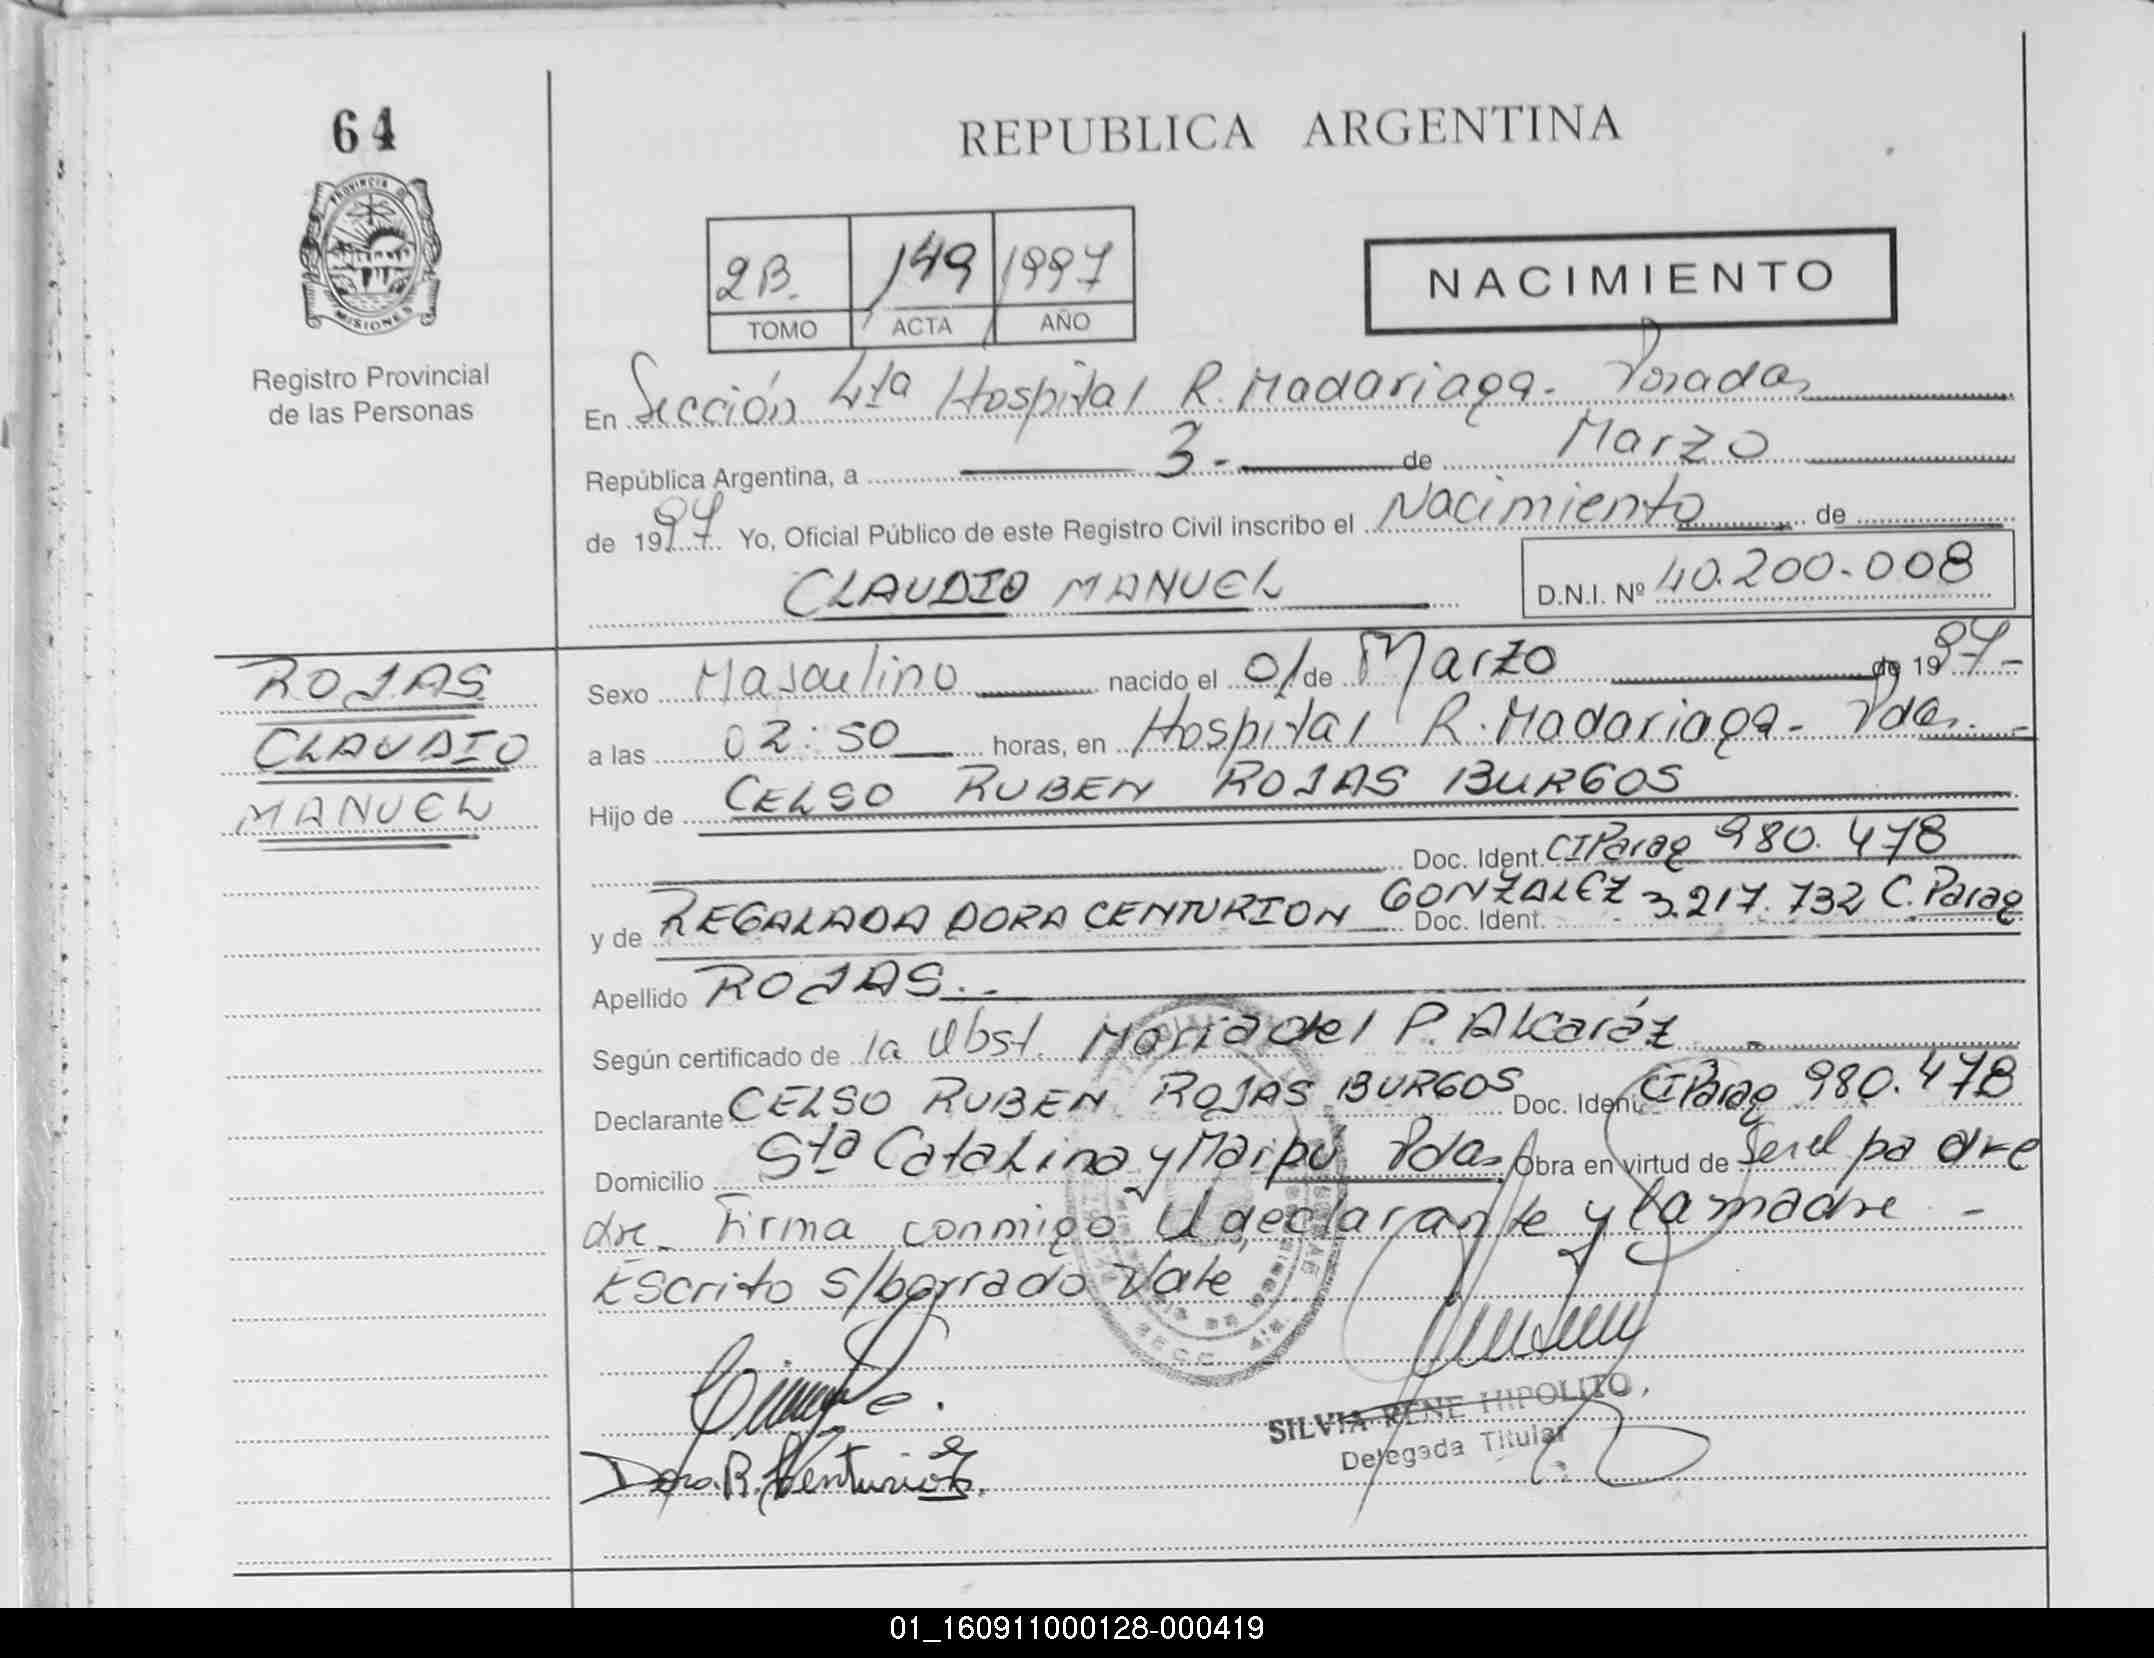 64
PROVINCIA DE
MISIONES
Registro Provincial
de las Personas
REPUBLICA ARGENTINA
2B. 149 1997
TOMO ACTA AÑO
NACIMIENTO
En Sección 4ta Hospital R. Madariaga - Posadas
República Argentina, a 3 - de Marzo
de 1997 Yo, Oficial Público de este Registro Civil inscribo el Nacimiento de
CLAUDIO MANUEL
D.N.I. Nº 40.200.008
ROJAS
CLAUDIO
MANUEL
Sexo Masculino nacido el 01 de Marzo de 1997-
a las 02:50 horas, en Hospital R. Madariaga - Pdas. -
Hijo de CELSO RUBEN ROJAS BURGOS
Doc. Ident. CI Parag 980.478
y de REGALADA DORA CENTURION GONZALEZ Doc. Ident. 3.217.732 C. Parag
Apellido ROJAS. -
Según certificado de la Obst. Maria del P. Alcaráz -
Declarante CELSO RUBEN ROJAS BURGOS Doc. Ident. CI Parag 980.478
Domicilio Sta Catalina y Maipú Pdas Obra en virtud de Ser el padre
dre - Firma conmigo el declarante y la madre -
Escrito s/borrado Vale
SILVIA RENE HIPOLITO
Delegada Titular
Dora. R. Centurion
01_160911000128-000419